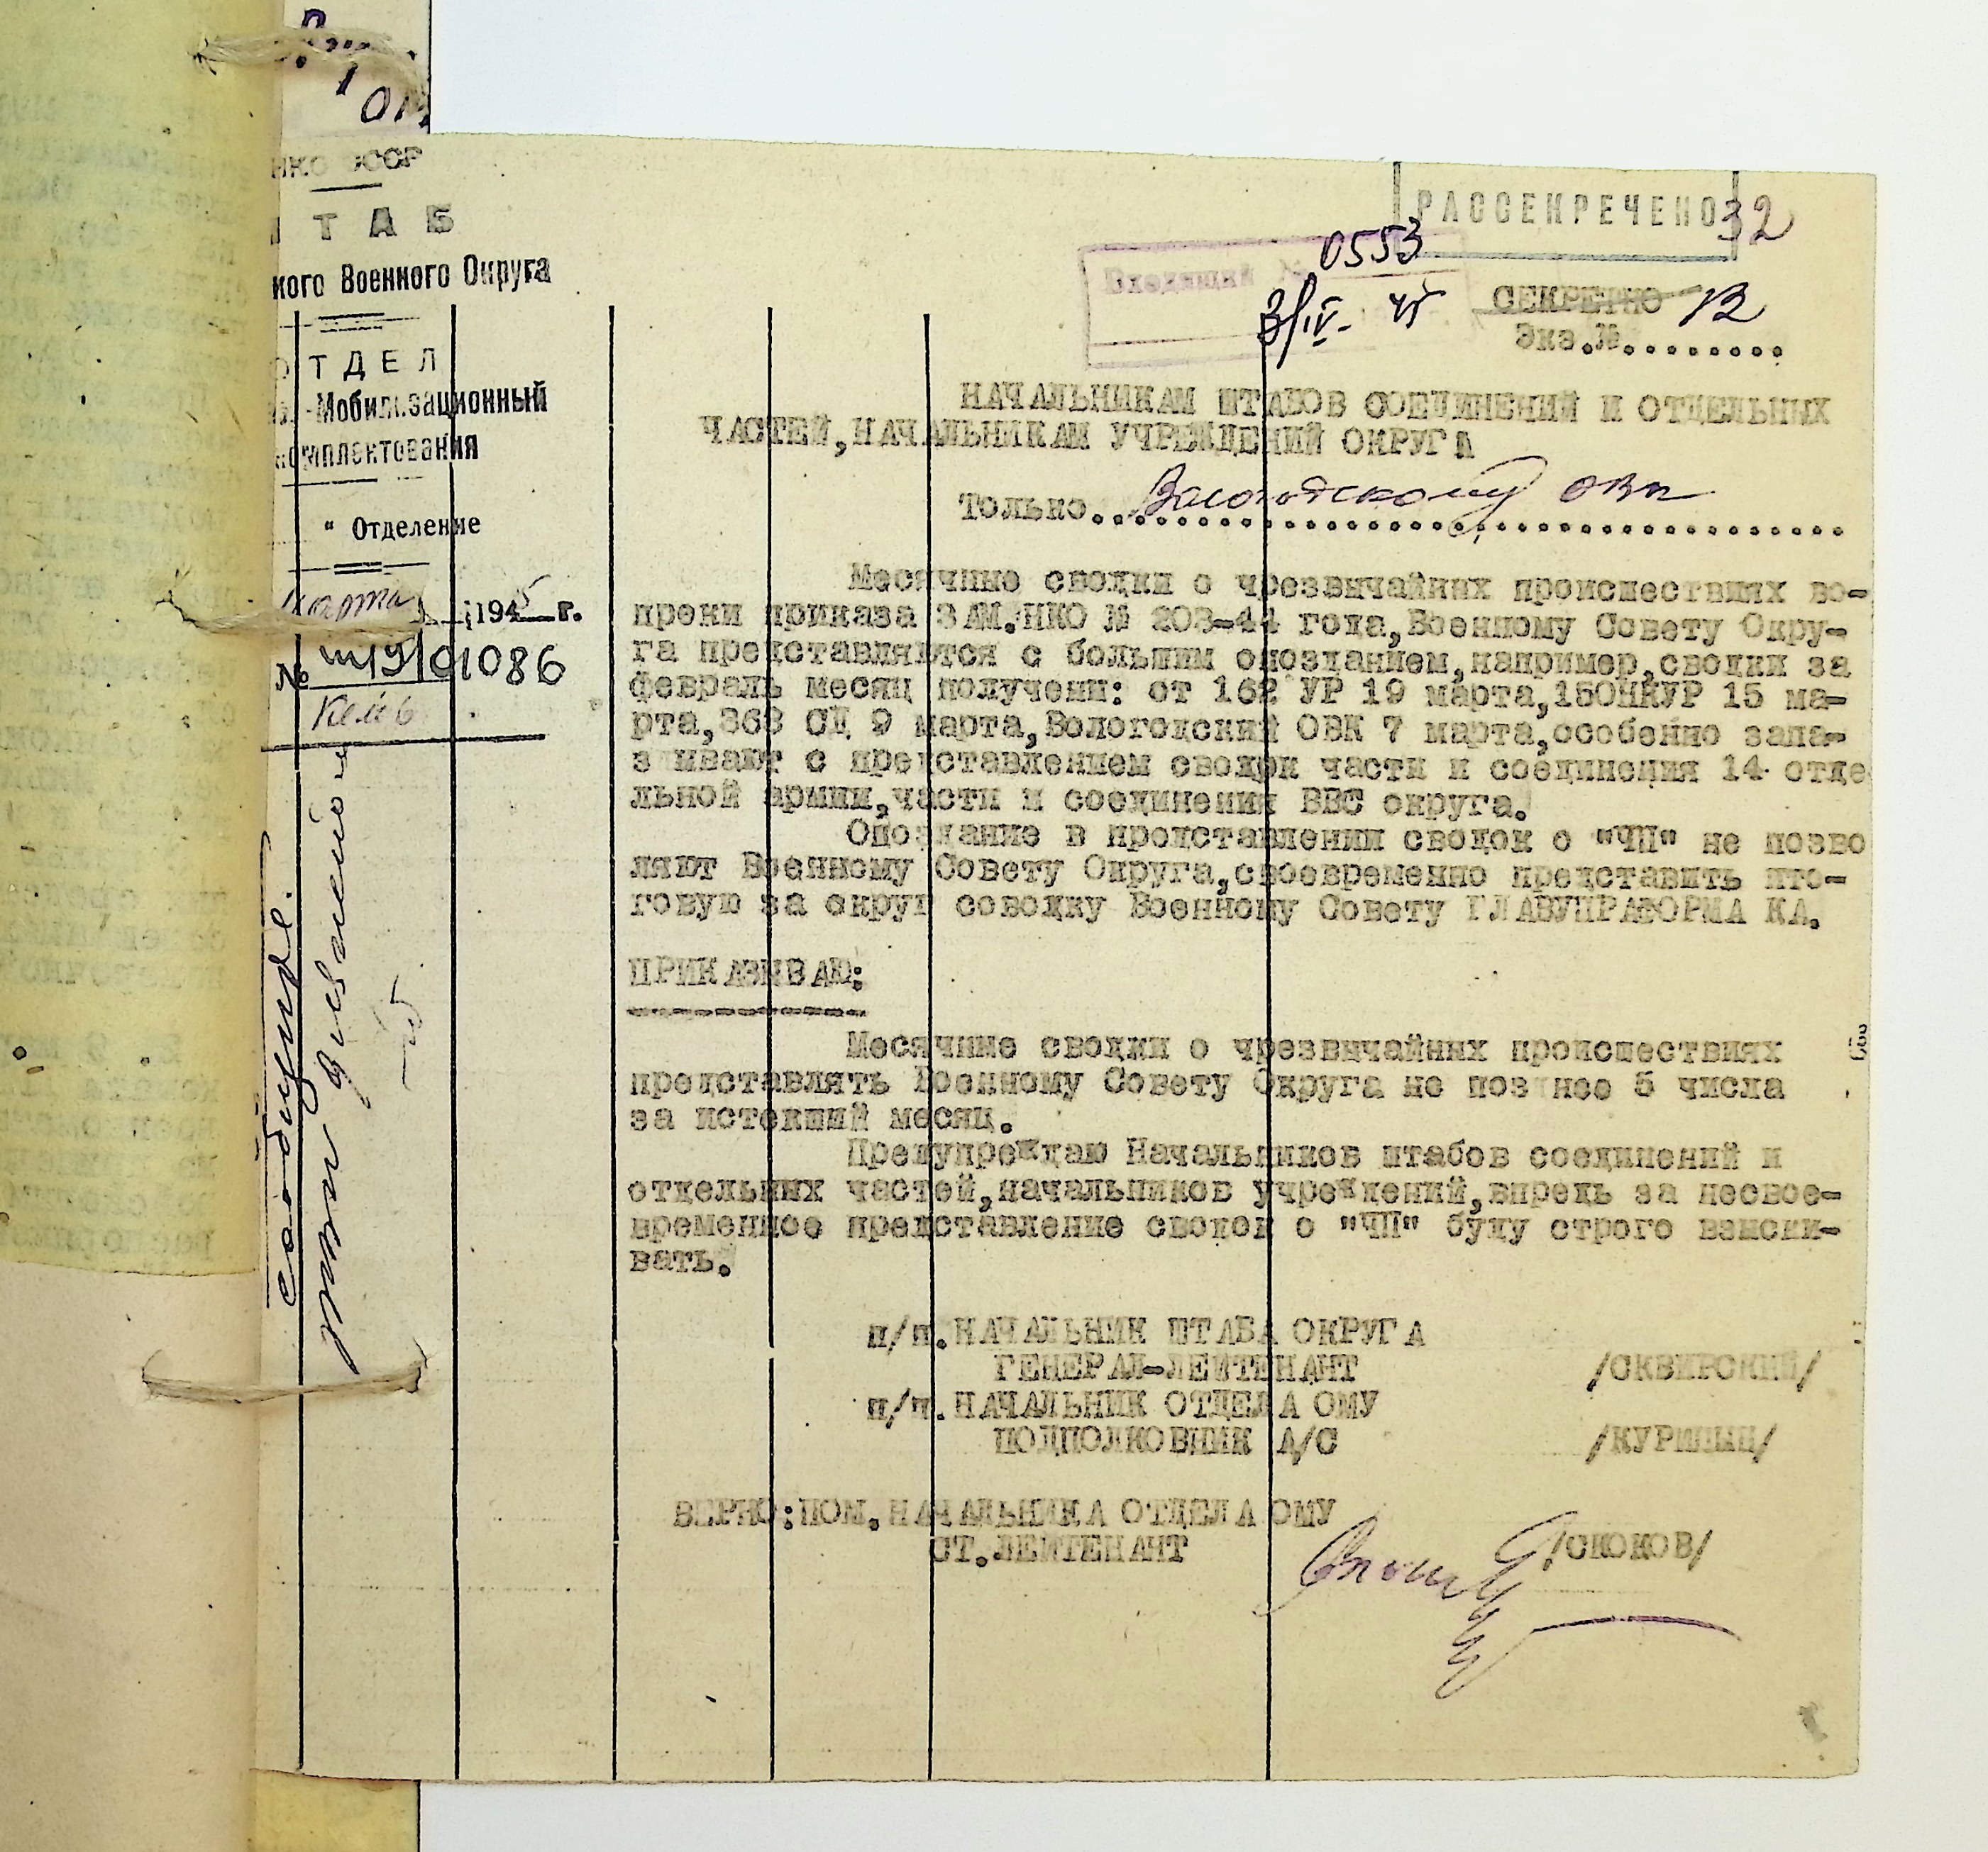 НКО СССР
ТАБ
кого Военного Округа
ОТДЕЛ
Мобилизационный
комплектования
" Отделение
марта 1945 г.
№ ш/9/01086
РАССЕКРЕЧЕНО 32
Входящий № 0553
3/IV- 45
СЕКРЕТНО
Экз.№.........
НАЧАЛЬНИКАМ ШТАБОВ СОЕДИНЕНИЙ И ОТДЕЛЬНЫХ
ЧАСТЕЙ,НАЧАЛЬНИКАМ УЧРЕЖДЕНИЙ ОКРУГА
Только... Вологодскому ОВК
Месячные сводки о чрезвычайных происшествиях во-
преки приказа ЗАМ.НКО № 203-44 года,Военному Совету Окру-
га представляются с большим опозданием,например,сводки за
февраль месяц получены: от 162 УР 19 марта,15ОНКУР 15 ма-
рта,368 СД 9 марта,Вологодский ОВК 7 марта,особенно запа-
з ывают с представлением сводки части и соединения 14 отде
льной армии,части и соединения ВВС округа.
Опоздание в представлении сводок о "ЧП" не позво
ляют Военному Совету Округа,своевременно представить ито-
говую за округ соводку Военному Совету ГЛАВУПРАФОРМА КА.
ПРИКАЗЫВАЮ:
Месячные сводки о чрезвычайных происшествиях
представлять Военному Совету Округа не поз нее 5 числа
за истекший месяц.
Предупреждаю Начальников штабов соединений и
отдельных частей,начальников учреждений,впредь за несвое-
временное представление сводок о "ЧП" буду строго взыски-
вать.
п/п.НАЧАЛЬНИК ШТАБА ОКРУГА
ГЕНЕРАЛ-ЛЕЙТЕНАНТ /СКВИРСКИЙ/
п/п.НАЧАЛЬНИК ОТДЕЛА ОМУ
ПОДПОЛКОВНИК А/С /КУРИЦЫН/
ВЕРНО:ПОМ.НАЧАЛЬНИКА ОТДЕЛА ОМУ
СТ.ЛЕЙТЕНАНТ /СКОКОВ/